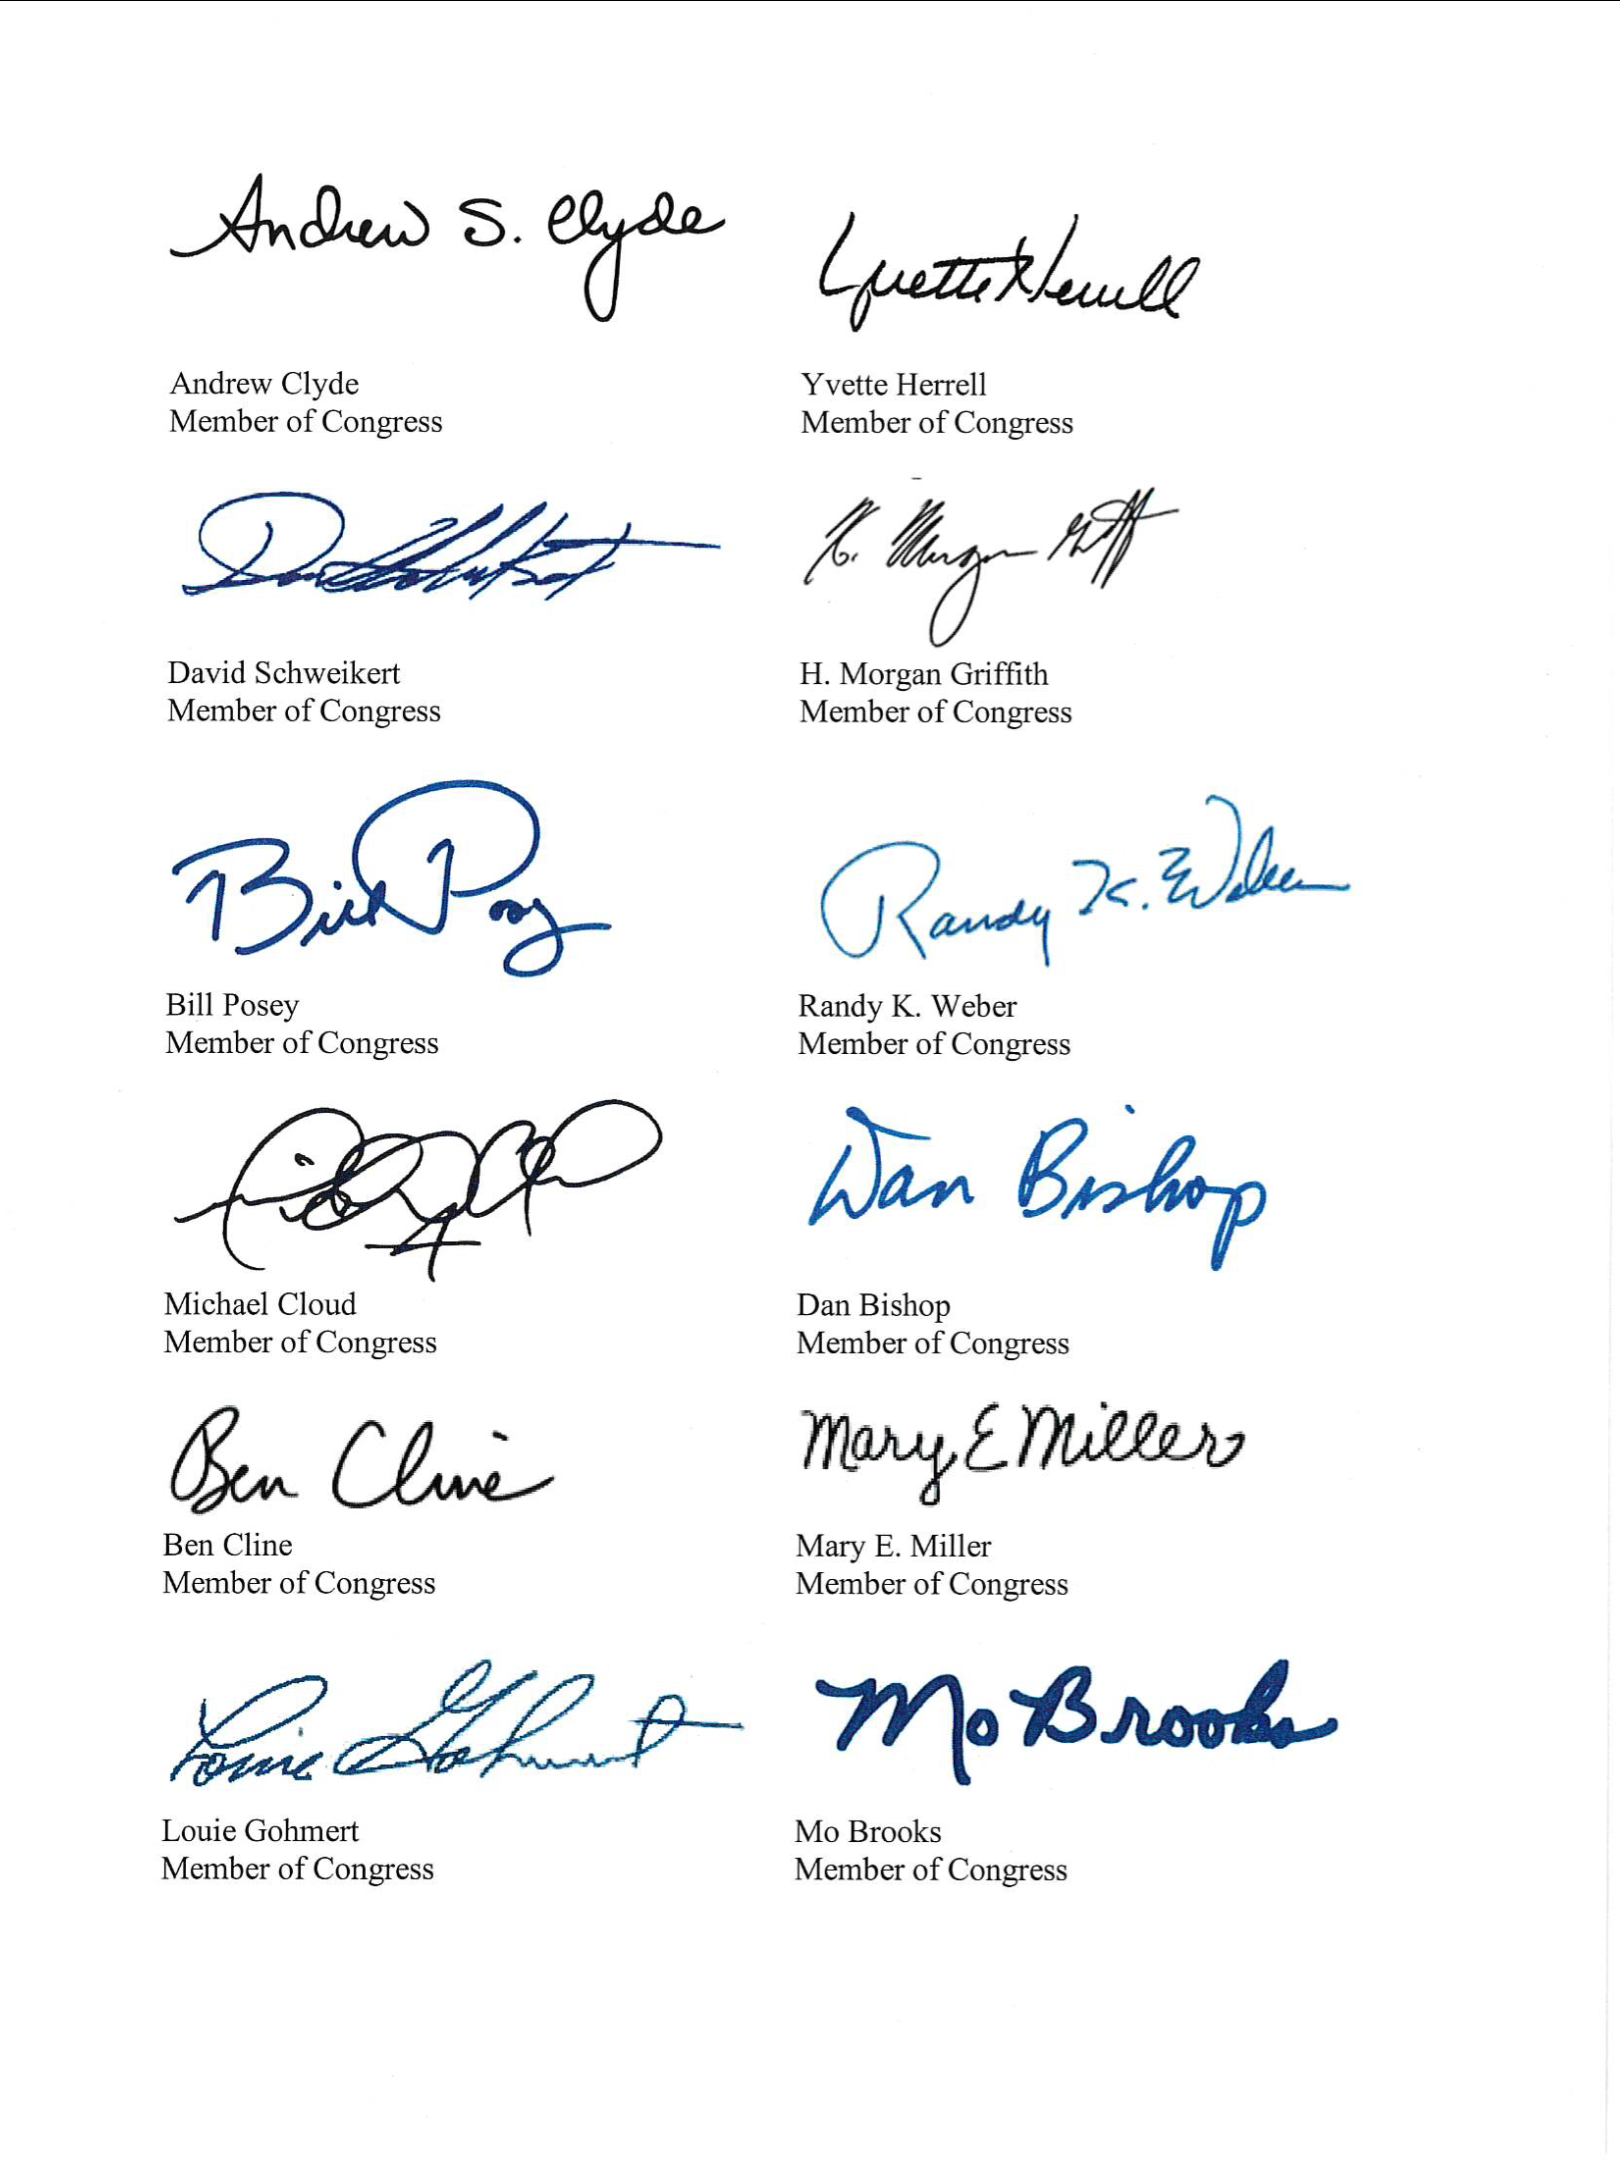 Andrew S. Clyde
Yvette Herrell
Andrew Clyde
Member of Congress
Yvette Herrell
Member of Congress
H. Morgan Griffith
David Schweikert
Member of Congress
H. Morgan Griffith
Member of Congress
Bill Posey
Randy K. Weber
Bill Posey
Member of Congress
Randy K. Weber
Member of Congress
Dan Bishop
Michael Cloud
Member of Congress
Dan Bishop
Member of Congress
Ben Cline
Mary E Miller
Ben Cline
Member of Congress
Mary E. Miller
Member of Congress
Louie Gohmert
Mo Brooks
Louie Gohmert
Member of Congress
Mo Brooks
Member of Congress